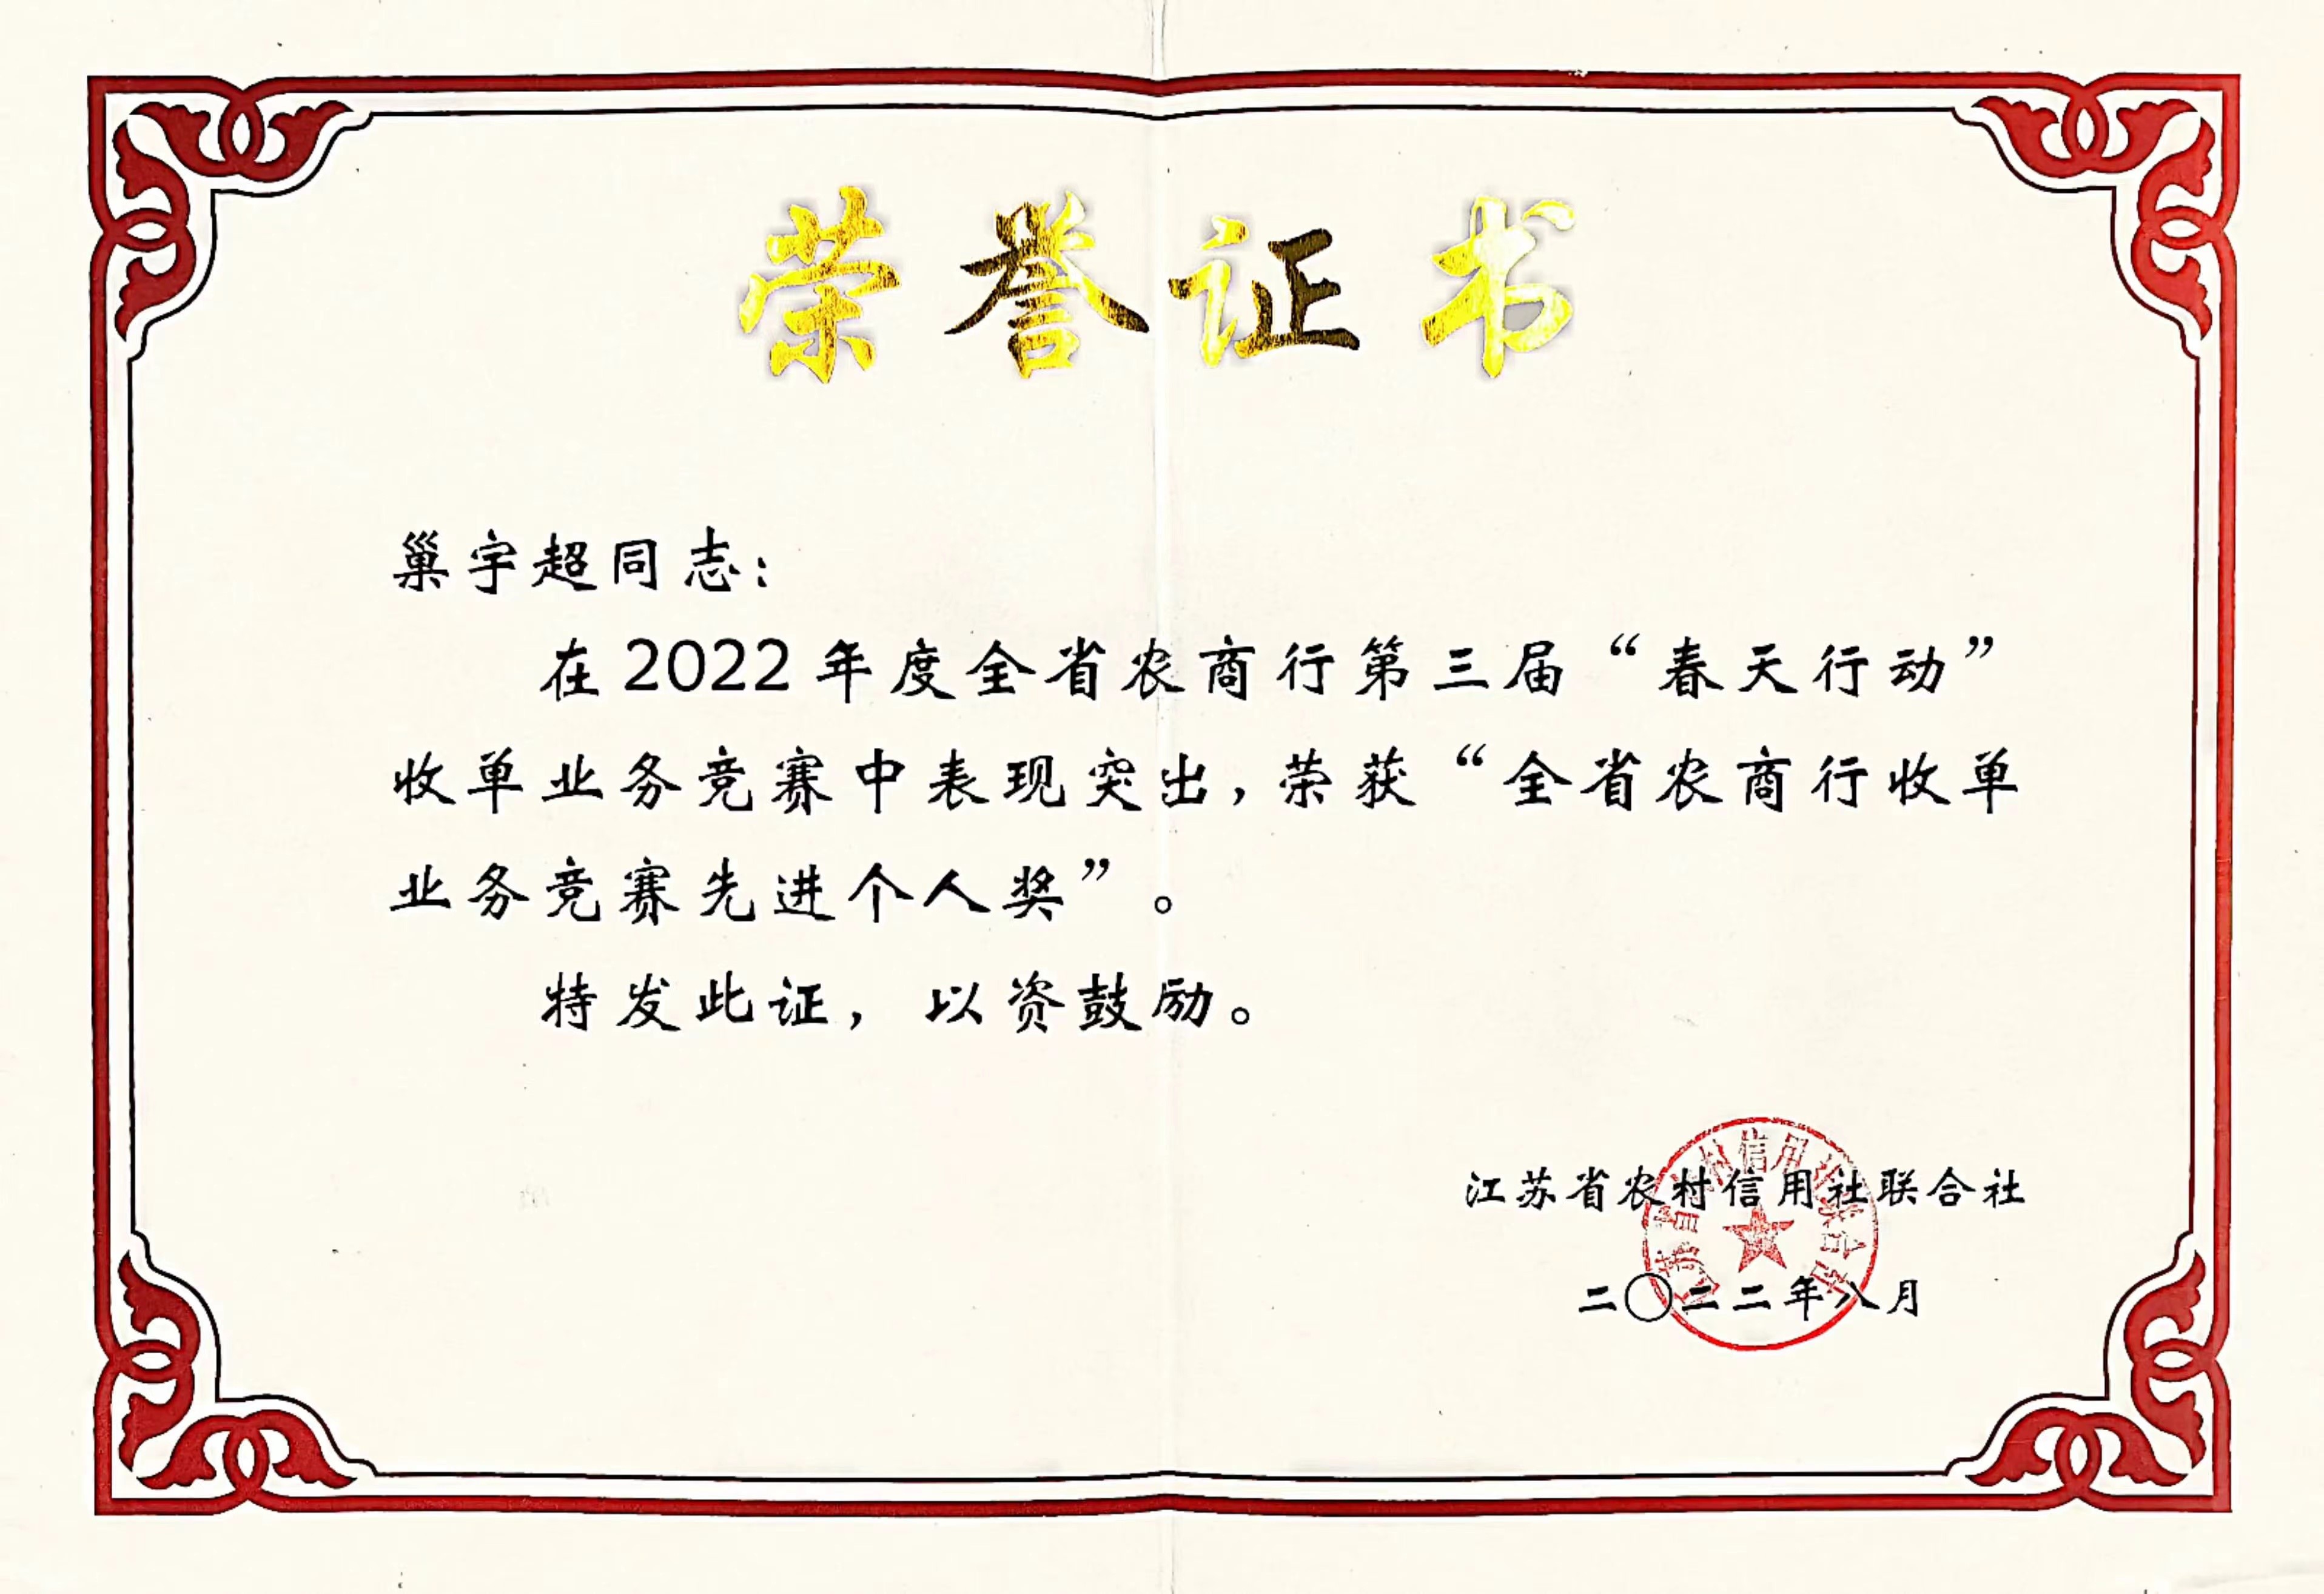 荣誉证书
巢宇超同志:
在2022年度全省农商行第三届“春天行动”
收单业务竞赛中表现突出,荣获“全省农商行收单
业务竞赛先进个人奖”。
特发此证,以资鼓励。
江苏省农村信用社联合社
江苏省农村信用社联合社
二〇二二年八月